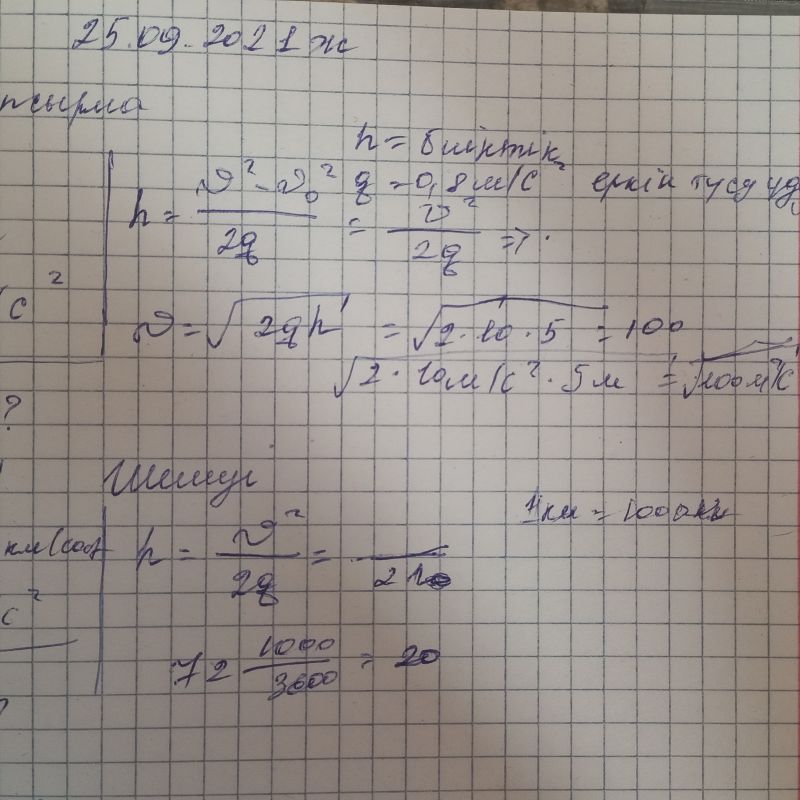 25.09.2021 ж
псырма
h = биіктік
h = (υ² - υ₀²) / 2g = υ² / 2g =>
g = 0,8 м/с² еркін түсу үд
с²
υ = √2gh = √2·10·5 = 100
√2·10м/с²·5м = √100м²/с²
?
Шешуі
1км = 1000м
км/сағ
h = υ² / 2g =
с²
72 1000/3600 = 20
?